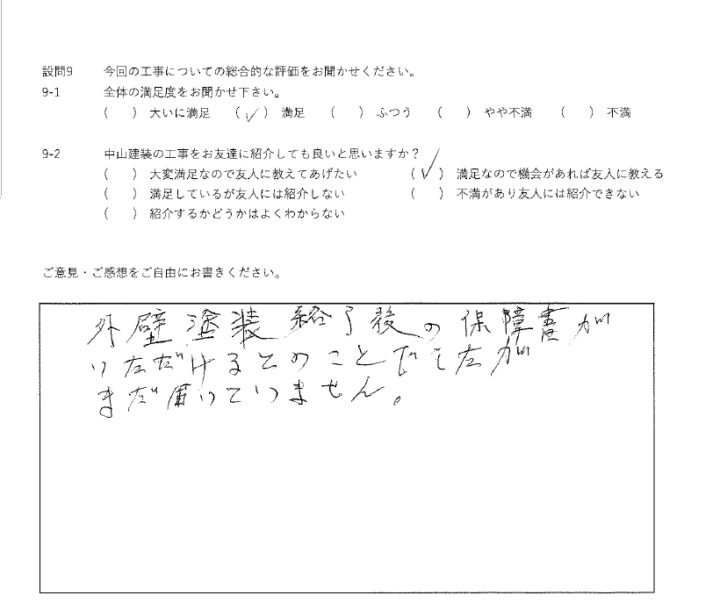 設問9 今回の工事についての総合的な評価をお聞かせください。
9-1 全体の満足度をお聞かせ下さい。
( ) 大いに満足 (✓) 満足 ( ) ふつう ( ) やや不満 ( ) 不満
9-2 中山建装の工事をお友達に紹介しても良いと思いますか?
( ) 大変満足なので友人に教えてあげたい (✓) 満足なので機会があれば友人に教える
( ) 満足しているが友人には紹介しない ( ) 不満があり友人には紹介できない
( ) 紹介するかどうかはよくわからない
ご意見・ご感想をご自由にお書きください。
外壁塗装終了後の保障書が
いただけるとのことでしたが
まだ届いていません。